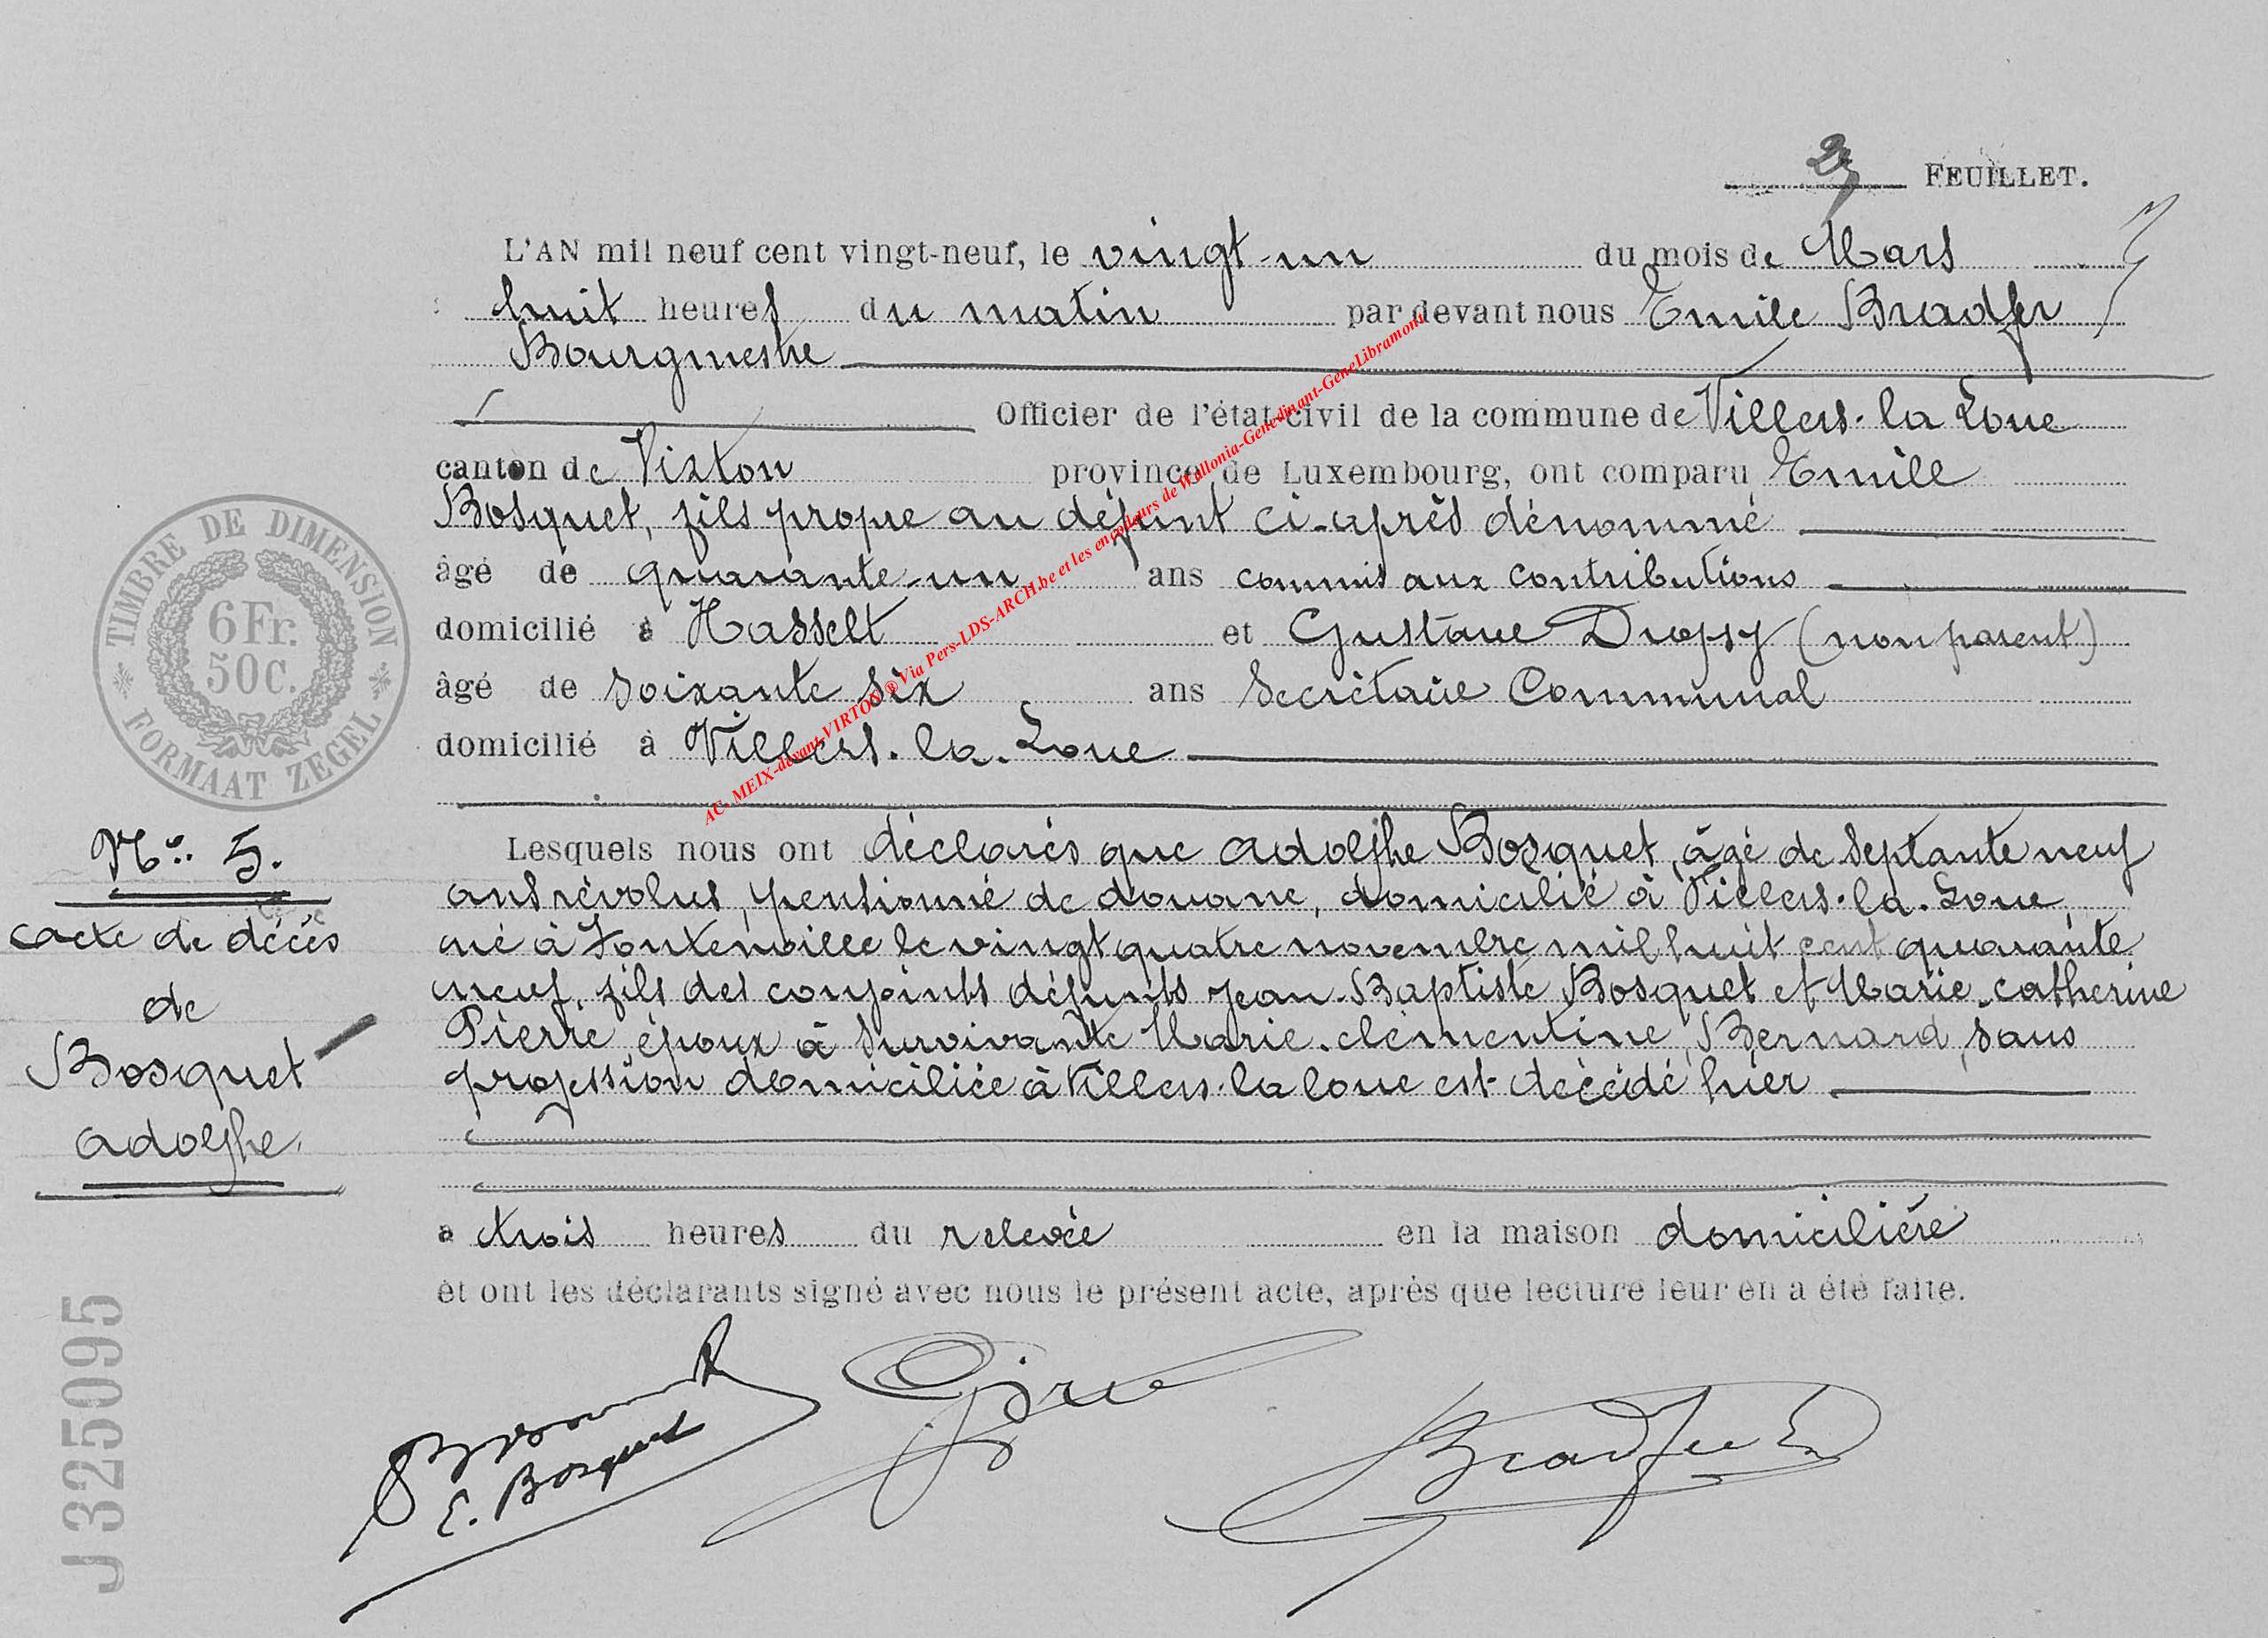 2 FEUILLET.
L'AN mil neuf cent vingt-neuf, le vingt-un du mois de Mars
huit heures du matin par devant nous Emile Bradfer
Bourgmestre
Officier de l'état-civil de la commune de Villers-la Loue
canton de Virton province de Luxembourg, ont comparu Emile
Bosquet, fils propre au défunt ci-après dénommé
âgé de quarante-un ans commis aux contributions
domicilié à Hasselt et Gustave Dropsy (non parent)
âgé de soixante six ans Secrétaire Communal
domicilié à Villers-la-Loue
Lesquels nous ont déclarés que Adolphe Bosquet, âgé de septante neuf
ans révolus, pensionné de douane, domicilié à Villers-la-Loue,
né à Fontenoille le vingt quatre novembre mil huit cent quarante
neuf, fils des conjoints défunts Jean-Baptiste Bosquet et Marie-Catherine
Pierre, époux à survivante Marie-Clémentine Bernard, sans
profession domiciliée à Villers-la loue est décédé hier
à trois heures du relevée en la maison domicilière
et ont les déclarants signé avec nous le présent acte, après que lecture leur en a été faite.
E. Bosquet
Bradfer E
N°: 5.
acte de décès
de
Bosquet
Adolphe.
TIMBRE DE DIMENSION
6 Fr.
50 C.
FORMAAT ZEGEL
J 325095
AC. MEIX-devant-VIRTON ® Via Pers-LDS-ARCH.be et les encodeurs de Wallonia-Genedinant-GeneLibramont